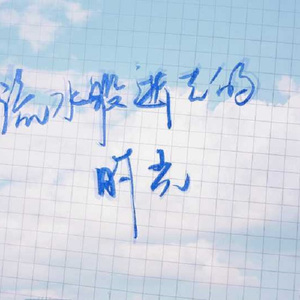 流水般逝去的
时光